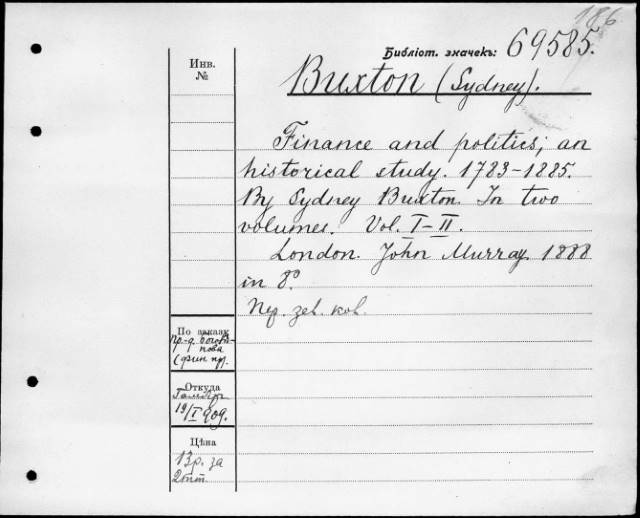 186
Библіот. значекъ: 69585.
Инв.
№
Buxton (Sydney).
Finance and politics; an
historical study. 1783-1885.
By Sydney Buxton. In two
volumes. Vol. I-II.
London. John Murray. 1888
in 8º
Пер. зел. кол.
По заказу
пр-д. Богол-
(фин пр.
Откуда
19/I 909.
Цѣна
13 р. за
2 т.